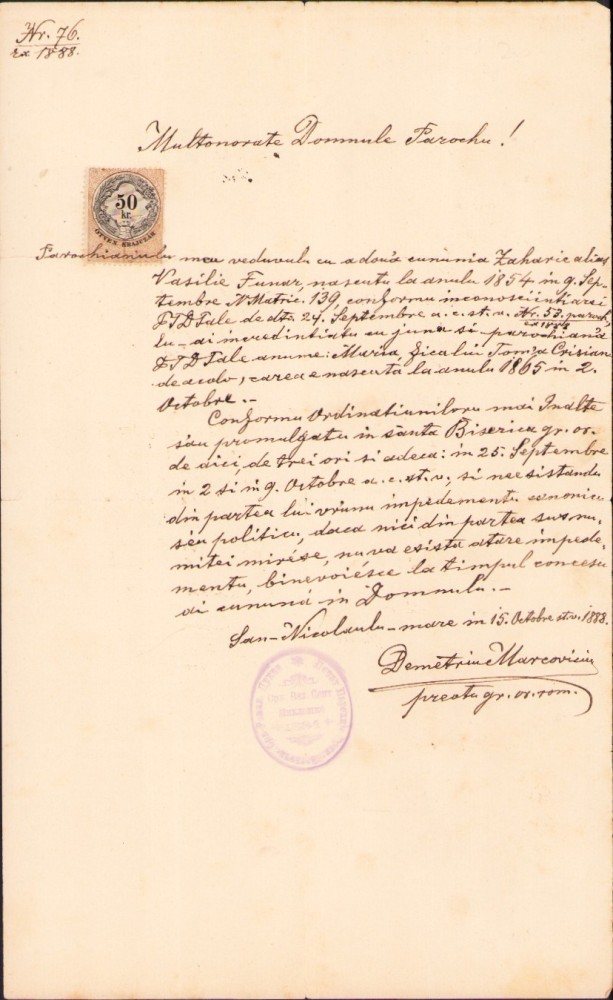 Nr. 76.
ex 1888.
Multonorate Domnule Parochu!
50
kr.
ÖTVEN KRAJCZÁR
Parochianulu meu veduvulu cu a dóua cununia Zaharie alias
Vasilie Funar, nascutu la anulu 1854 in 9. Sep-
tembre Nr Matric. 139, conformu inconosciintiarei
D-tale de dto. 24. Septembre a. c. st. v. Nr. 53. paroch.
ex 1888
lu-ai incredintiatu cu juna si parochiana
D-tale anume: Maria, fiica lui Tom'a Crisian
de acolo, carea e nascutá la anulu 1865 in 2.
Octobre. -
Conformu Ordinatiuniloru mai Inalte
s'au promulgatu in sânta Biserica gr. or.
de aici, de trei ori si adeca: in 25. Septembre
in 2 si in 9. Octobre a. c. st. v., si neesistandu
din partea lui vriunu impedementu canonicu
séu politicu, daca nici din partea sus nu-
mitei mirése, nu va esista atare impede-
mentu, binevoiésce la timpul concesu
ai cununá in Domnulu. -
San-Nicolaulu-mare in 15. Octobre st. v. 1888.
Demetriu Marcoviciu
preotu gr. or. rom.